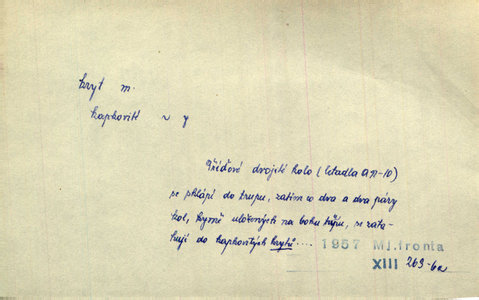 kryt m.
kapkovité ~ y
Příďové dvojité kolo (letadla AN-10)
se sklápí do trupu, zatím co dva a dva páry
kol, krymě uložených na boku trupu, se zata-
hují do kapkovitých krytů....
1957 Mj. fronta
XIII 263-6a